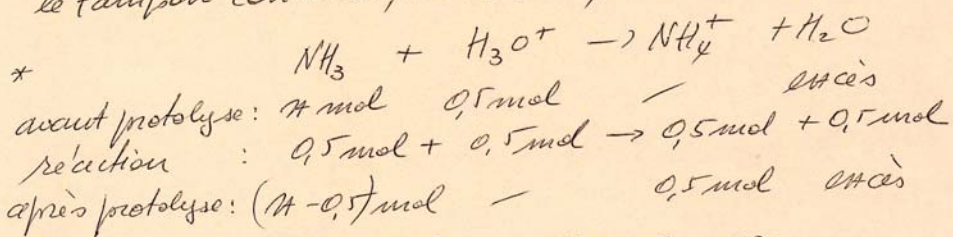 le tampon
* NH₃ + H₃O⁺ → NH₄⁺ + H₂O
avant protolyse : x mol 0,5 mol / excès
réaction : 0,5 mol + 0,5 mol → 0,5 mol + 0,5 mol
après protolyse : (x - 0,5) mol - 0,5 mol excès